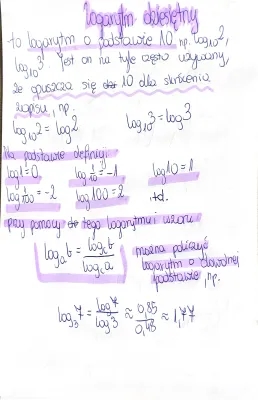 logarytm dziesiętny
to logarytm o podstawie 10, np. log₁₀2,
log₁₀3. Jest on na tyle często używany,
że opuszcza się 10 dla skrócenia
zapisu, np.
log₁₀2 = log2 log₁₀3 = log3
Na podstawie definicji:
log1 = 0, log 1/10 = -1 log10 = 1
log 1/100 = -2 log100 = 2 itd.
przy pomocy tego logarytmu i wzoru
logₐb = log_c b / log_c a można policzyć
logarytm o dowolnej
podstawie, np.
log₃7 = log7 / log3 ≈ 0,85 / 0,48 ≈ 1,77